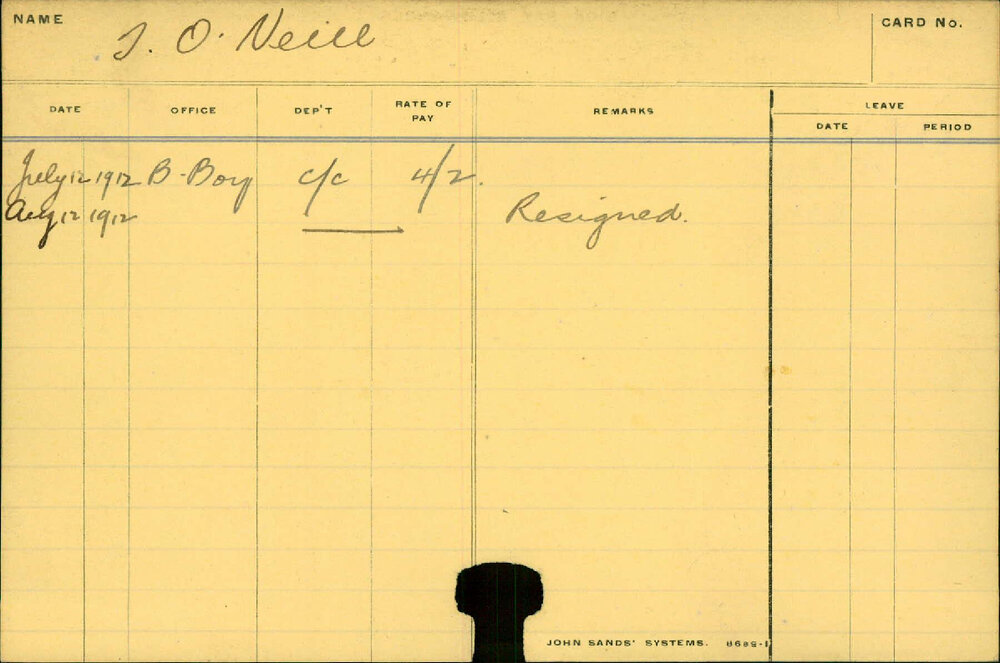 NAME
J. O'Neill
CARD No.
DATE OFFICE DEP'T RATE OF PAY REMARKS LEAVE
DATE PERIOD
July 12 1912 B-Boy c/c 4/2.
Aug 12 1912 Resigned.
JOHN SANDS' SYSTEMS. 8689-1